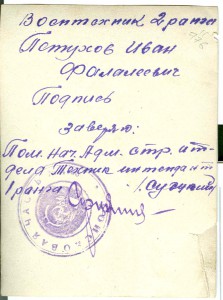 Воентехник 2 ранга
Петухов Иван
Фалалеевич
Подпись
заверяю:
Пом. Нач. Адм. стр. от-
дела Техник интендант
1 ранга